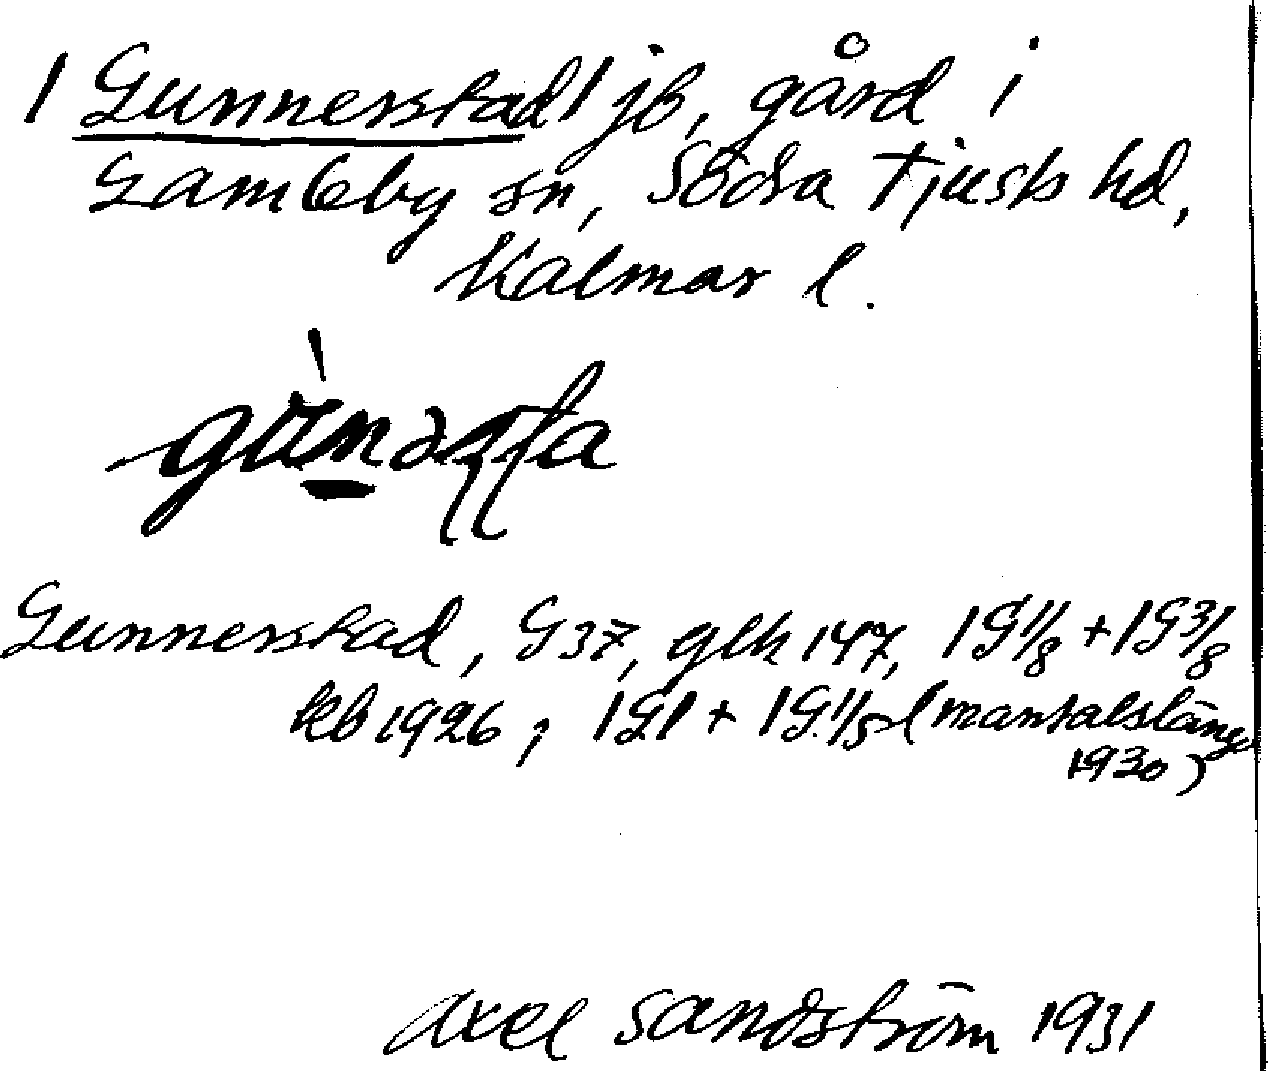 1 Gunnerstad 1 jb, gård i
Gamleby sn, Södra Tjusts hd,
Kalmar l.
Gunnerstad, G37, glk 147, 1G 1/8 + 1G 3/8
kb 1926, 1G1 + 1G. 1/5 (mantalsläng
1930)
Axel Sandström 1931